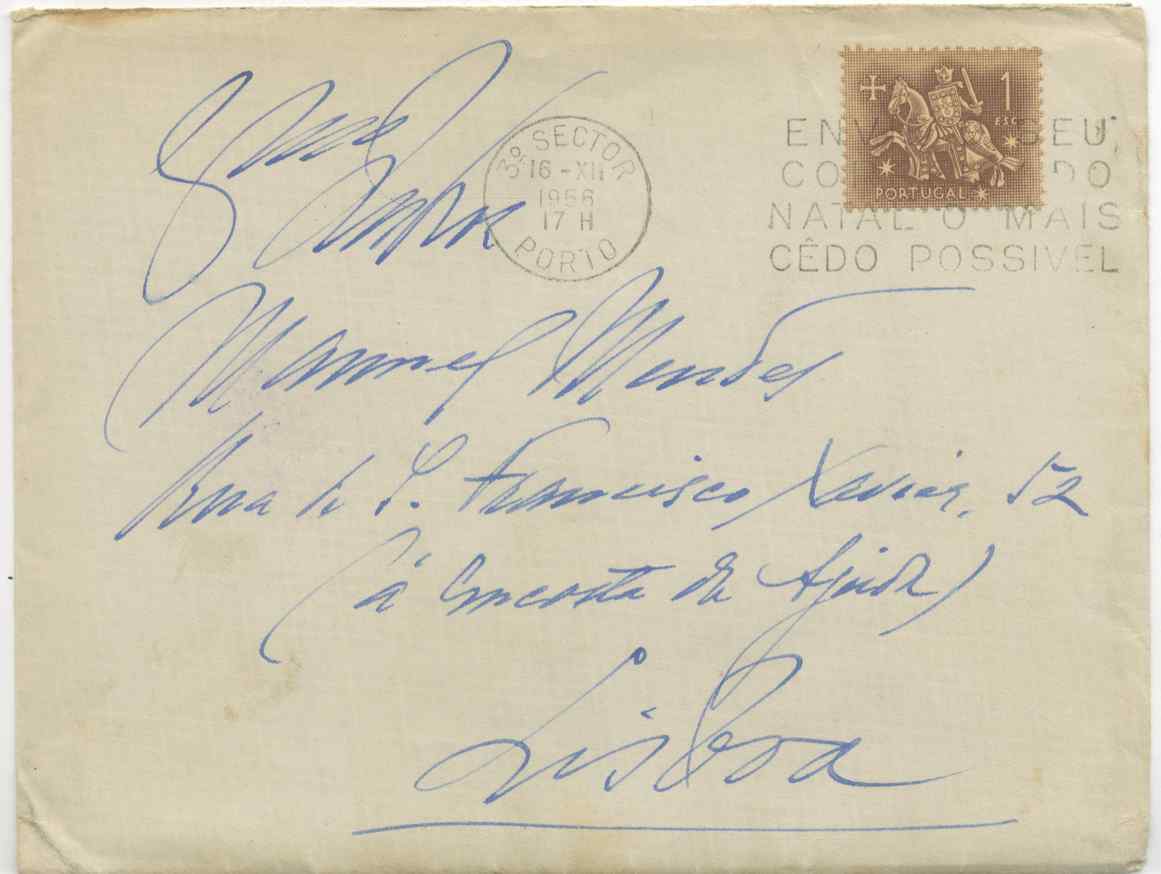 Senhor
3º SECTOR
16-XII
1956
17 H
PORTO
1
ESC.
PORTUGAL
SEU
NATAL O MAIS
CÊDO POSSIVEL
Manuel Mendes
Rua de S. Francisco Xavier, 52
(à Encosta da Ajuda)
Lisboa